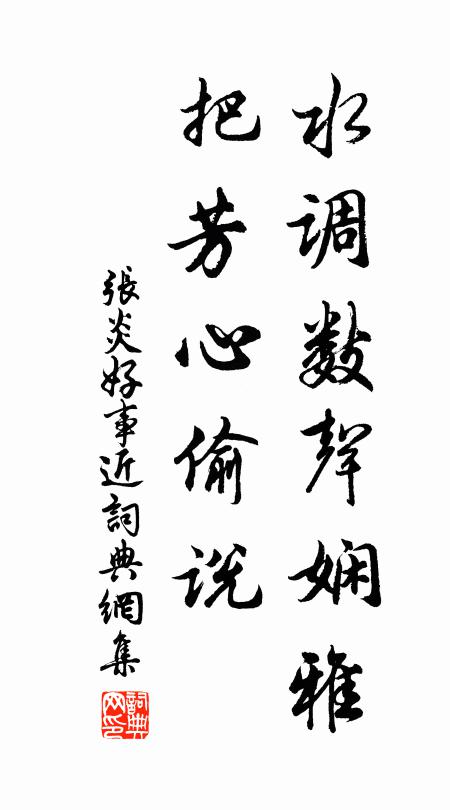 水调数聲娴雅
把芳心偷说
張炎好事近詞典網集
詞典网印